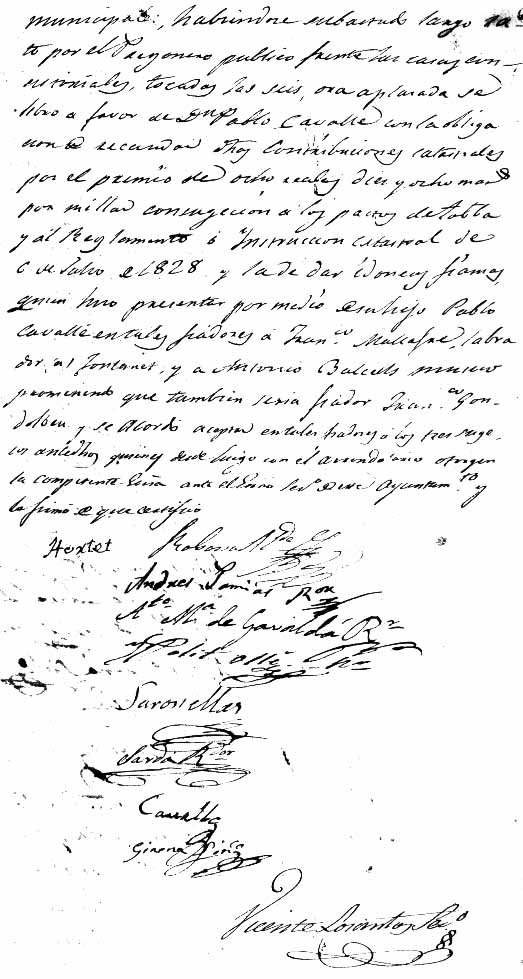 municipal, habiendose subastado largo ra.to
to por el Pregonero publico frente las casas con-
sistoriales, tocadas las seis, ora aplasada se
libro a favor de Dn Pablo Cavallé con la obliga
con de recaudar dhas Contribuciones catastrales
por el premio de ocho reales dies y ocho mars
por millar consugecion á los pactos de tabla
y al Reglamento é Instruccion Catastral de
6 de Julio de 1828 y la de dar idoneas fiansas,
quien hiso presentar por medio de su hijo Pablo
Cavallé en tales fiadores á Fran.co Mallafré, labra
dor, al Fontanet, y a Antonio Balcels
prometiendo que tambien seria fiador Fran.co Gon-
dolbeu y se Acordó aceptar en tales fiadores á los tres suge-
tos antedhos quienes desde luego con el arrendatario otorguen
la competente Essra ante el Essno Sec.o de este Ayuntam.to y
lo firmó de que certifico
Hortet Robana Alde
Andres Tomias Ror
Anto Ma de Gavaldá Rr
Polit Ollé
Saronellas
Sardá Ror
Cavallé
Girona Sind
Vicente Lorantes Sec.o